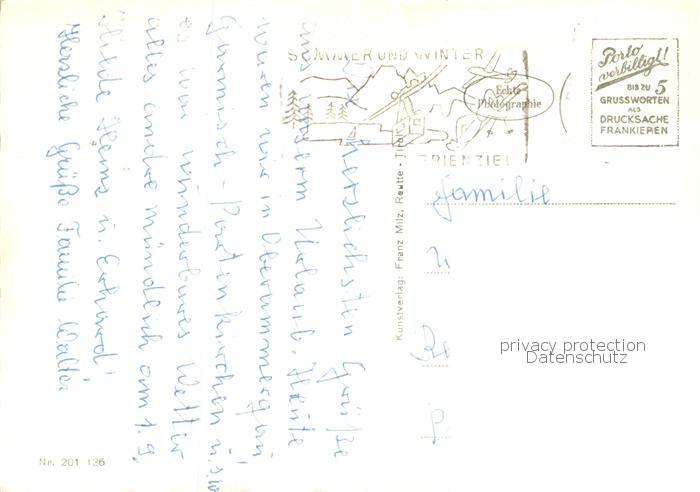 Die herzlichsten Grüße
aus unserem Urlaub. Heute
waren wir in Oberammergau
Garmisch-Partenkirchen u.s.w.
es war wunderbares Wetter
alles andre mündlich am 1.9.
Hilde Heinz u. Erhard
Herzliche Grüße Familie Walter
Nr. 201 136
SOMMER UND WINTER
FERIENZIEL
Echte
Photographie
Kunstverlag: Franz Milz, Reutte - Tirol
Porto
verbilligt!
BIS ZU 5
GRUSSWORTEN
ALS
DRUCKSACHE
FRANKIEREN
Familie
privacy protection
Datenschutz